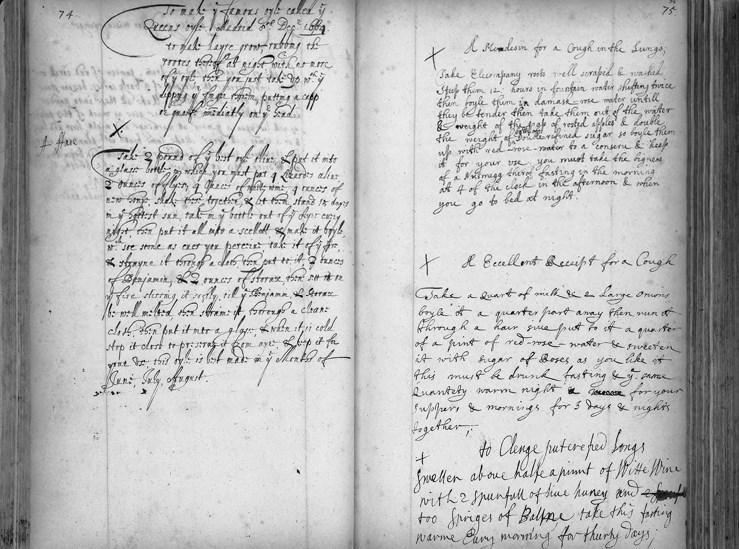 74
To make ye famous oyle called ye
Queens oyle
to make hayre grow, rubbing the
rootes thereof at night with as more
of ye oyle then you just take up wth ye
dipping ye finger therein, putting a capp
or quaife imediatly on ye head.
X.
Take 2 pound of ye best oyle olive, & put it into
a glass bottle, in which you must put 4 alive
2 ounces of 4 ounces of white wine, 4 ounces of
new hony, shake these together, & let them stand 12 days
in ye hottest sun, take in ye bottle out of ye every
night, then put it all into a scellett, & make it boyle
wn see some as ever you perceive take it of ye fire,
& strayne it through a cloth then put to it 2 ounces
of Benjamin, & 2 ounces of storax, then sett it on
ye fire stirring it softly, till ye Benjamin, & Storax
be well melted, then straine it through a cleane
cloth, then put it into a glass, & when it is cold
stop it close to preserve it from aire, & keep it for
your use this oyle is best made in ye Months of
June, July, August.
75
X
A for a Cough in the Lungs;
Take Elecampany roots well scraped & washed
steep them 12 hours in fountain water shifting twice
then boyle them in damask rose water untill
they be tender then take them out of the water
& weight of the pap of rosted apples & double
the weight of refined sugar so boyle them
up with red rose water to a conserve & keep
it for your use you must take the bigness
of a Nutmegg thereof fasting in the morning
at 4 of the clock in the afternoon & when
you go to bed at night.
X
A Eccellent Receipt for a Cough
Take a Quart of milk & 2 Large Onions
boyle it a quarter part away then run it
through a hair sive put to it a quarter
of a pint of red rose water & sweeten
it with sugar of Roses as you like it
this must be drunk fasting & ye same
Quantety warm night & for your
suppers & mornings for 3 days & nights
together;
X
to Clenge puterefied Longs
Swallen above halfe a pinnt of Witte Wine
with 2 spunfull of live huney and
too Spriges of Balme take this fasting
warme Every morning for thurty days;